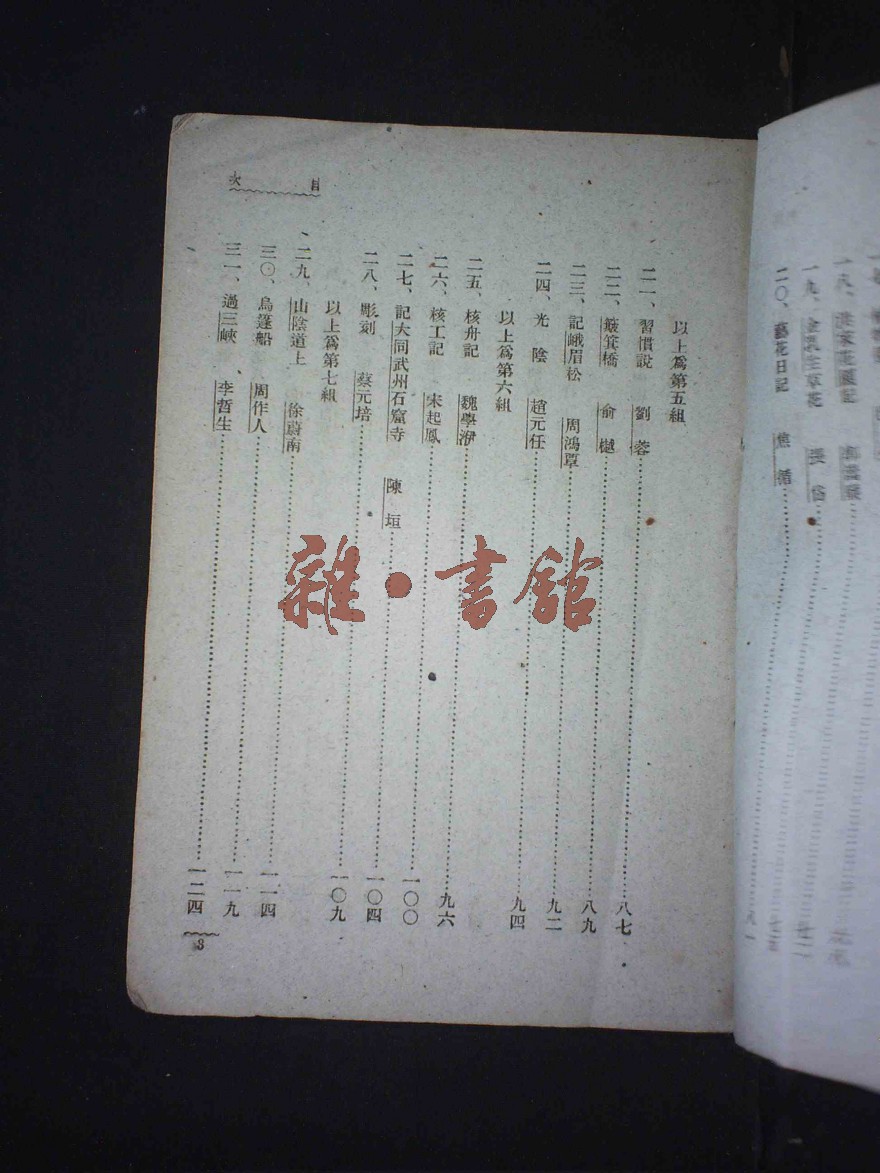 一九、金乳生草花 張岱
二〇、藝花日記 焦循
目次
以上爲第五組
二一、習慣說 劉蓉 八七
二二、簸箕橋 俞樾 八九
二三、記峨眉松 周鴻覃 九二
二四、光陰 趙元任 九四
以上爲第六組
二五、核舟記 魏學洢 九六
二六、核工記 宋起鳳 一〇〇
二七、記大同武州石窟寺 陳垣 一〇四
二八、彫刻 蔡元培 一〇九
以上爲第七組
二九、山陰道上 徐蔚南 一一四
三〇、烏篷船 周作人 一一九
三一、過三峽 李哲生 一二四
3
雜·書館